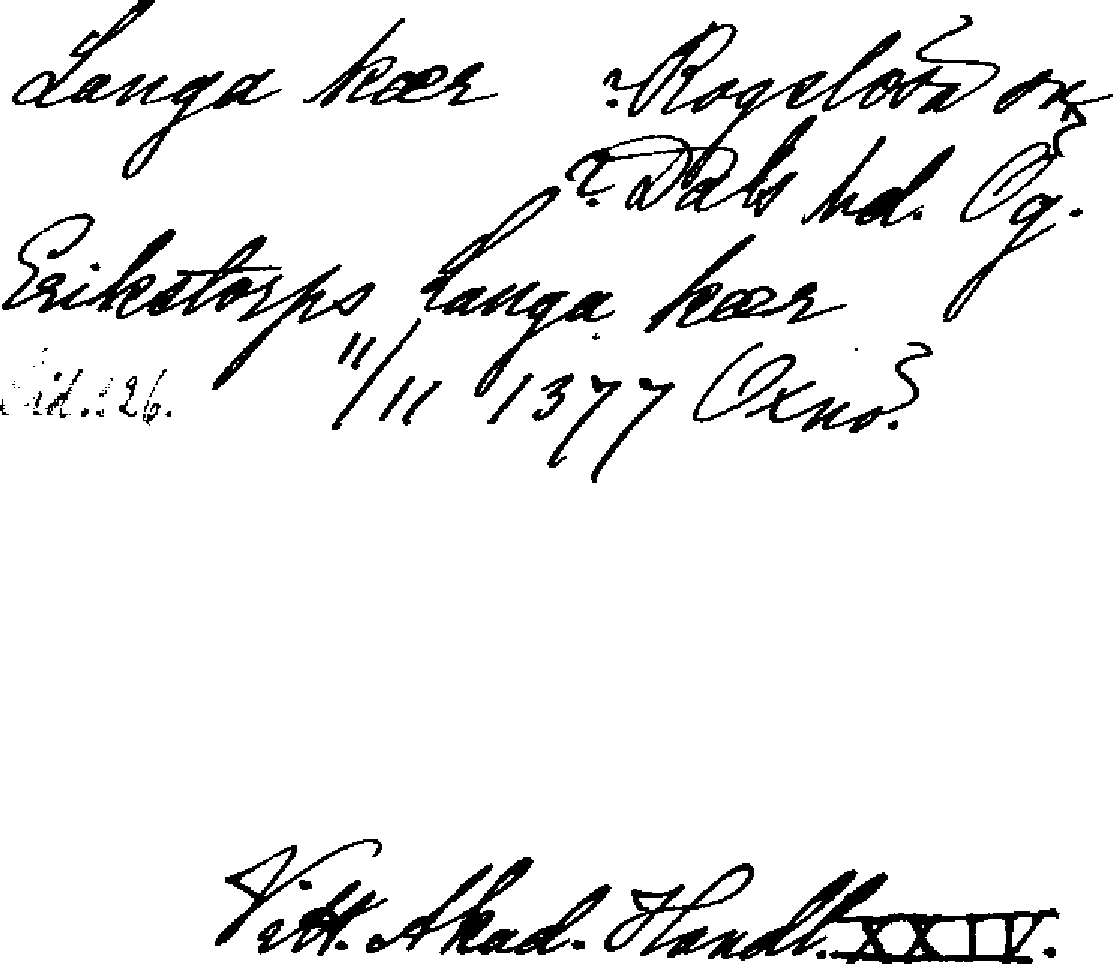 Langa kær ? Rogslösa sn
? Dals hd. Ög.
Erikstorps Langa kær
Sid. 126. 11/11 1377 Oxno?
Vitt. Akad. Handl. XXIV.